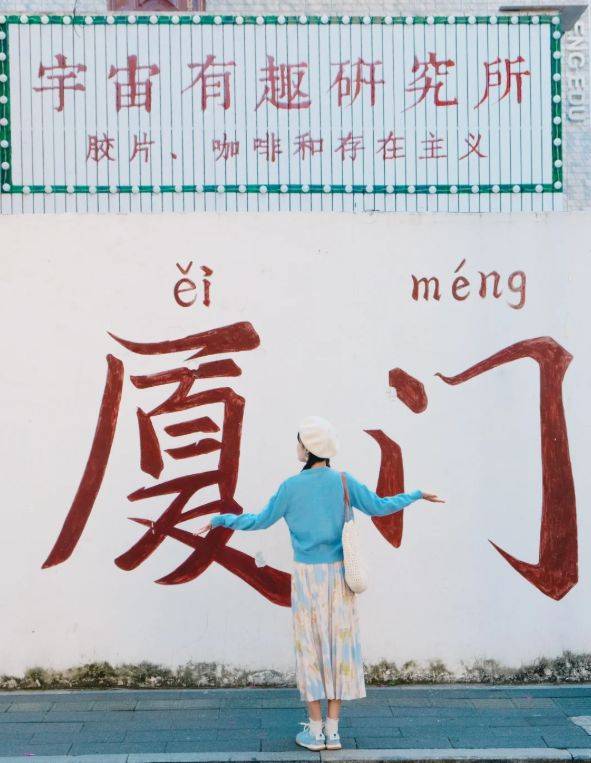 宇宙有趣研究所
胶片、咖啡和存在主义
ěi méng
厦门
ENG EDU